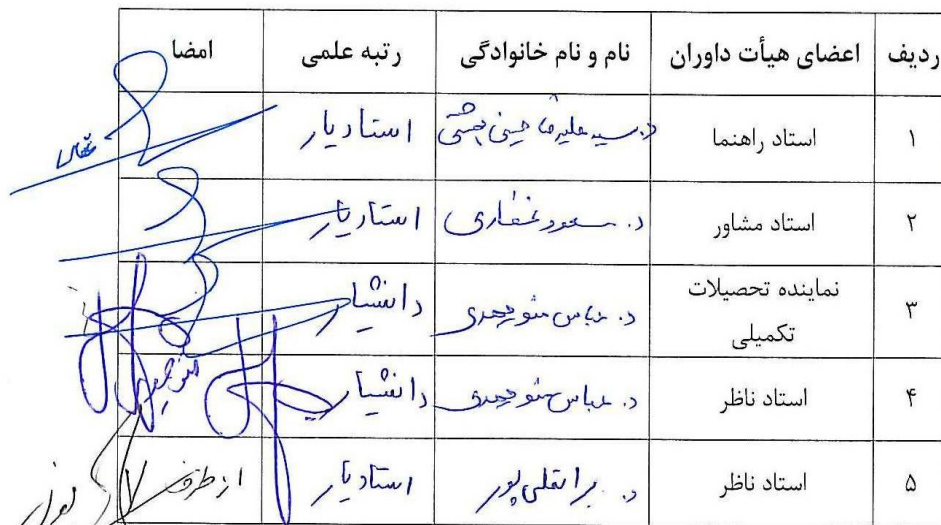 ردیف اعضای هیأت داوران نام و نام خانوادگی رتبه علمی امضا
۱ استاد راهنما د. سید علیرضا حسینی بهشتی استادیار
۲ استاد مشاور د. مسعود غفاری استادیار
۳ نماینده تحصیلات تکمیلی د. عباس منوچهری دانشیار
۴ استاد ناظر د. عباس منوچهری دانشیار
۵ استاد ناظر د. براتعلی پور استادیار از طرف